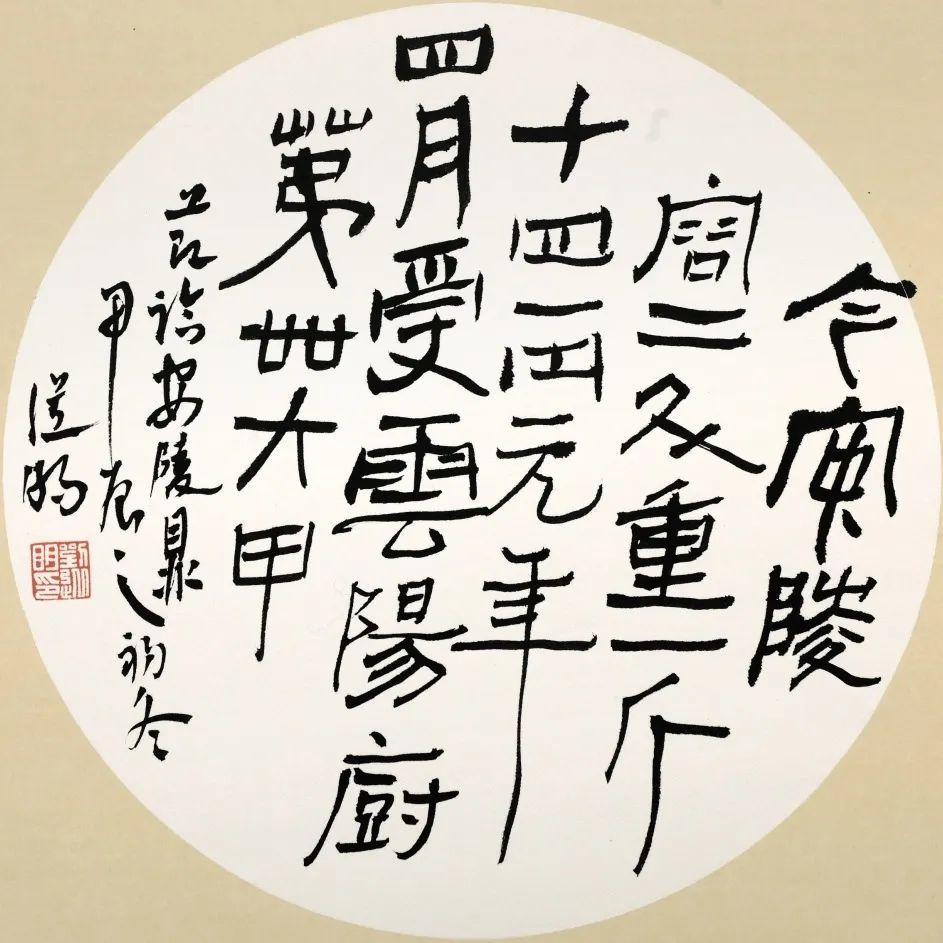 今安陵
容二斗重一斤
十四兩元年
四月受雲陽厨
第卌六甲
安陵鼎
甲辰之初冬
道明
劉道明印